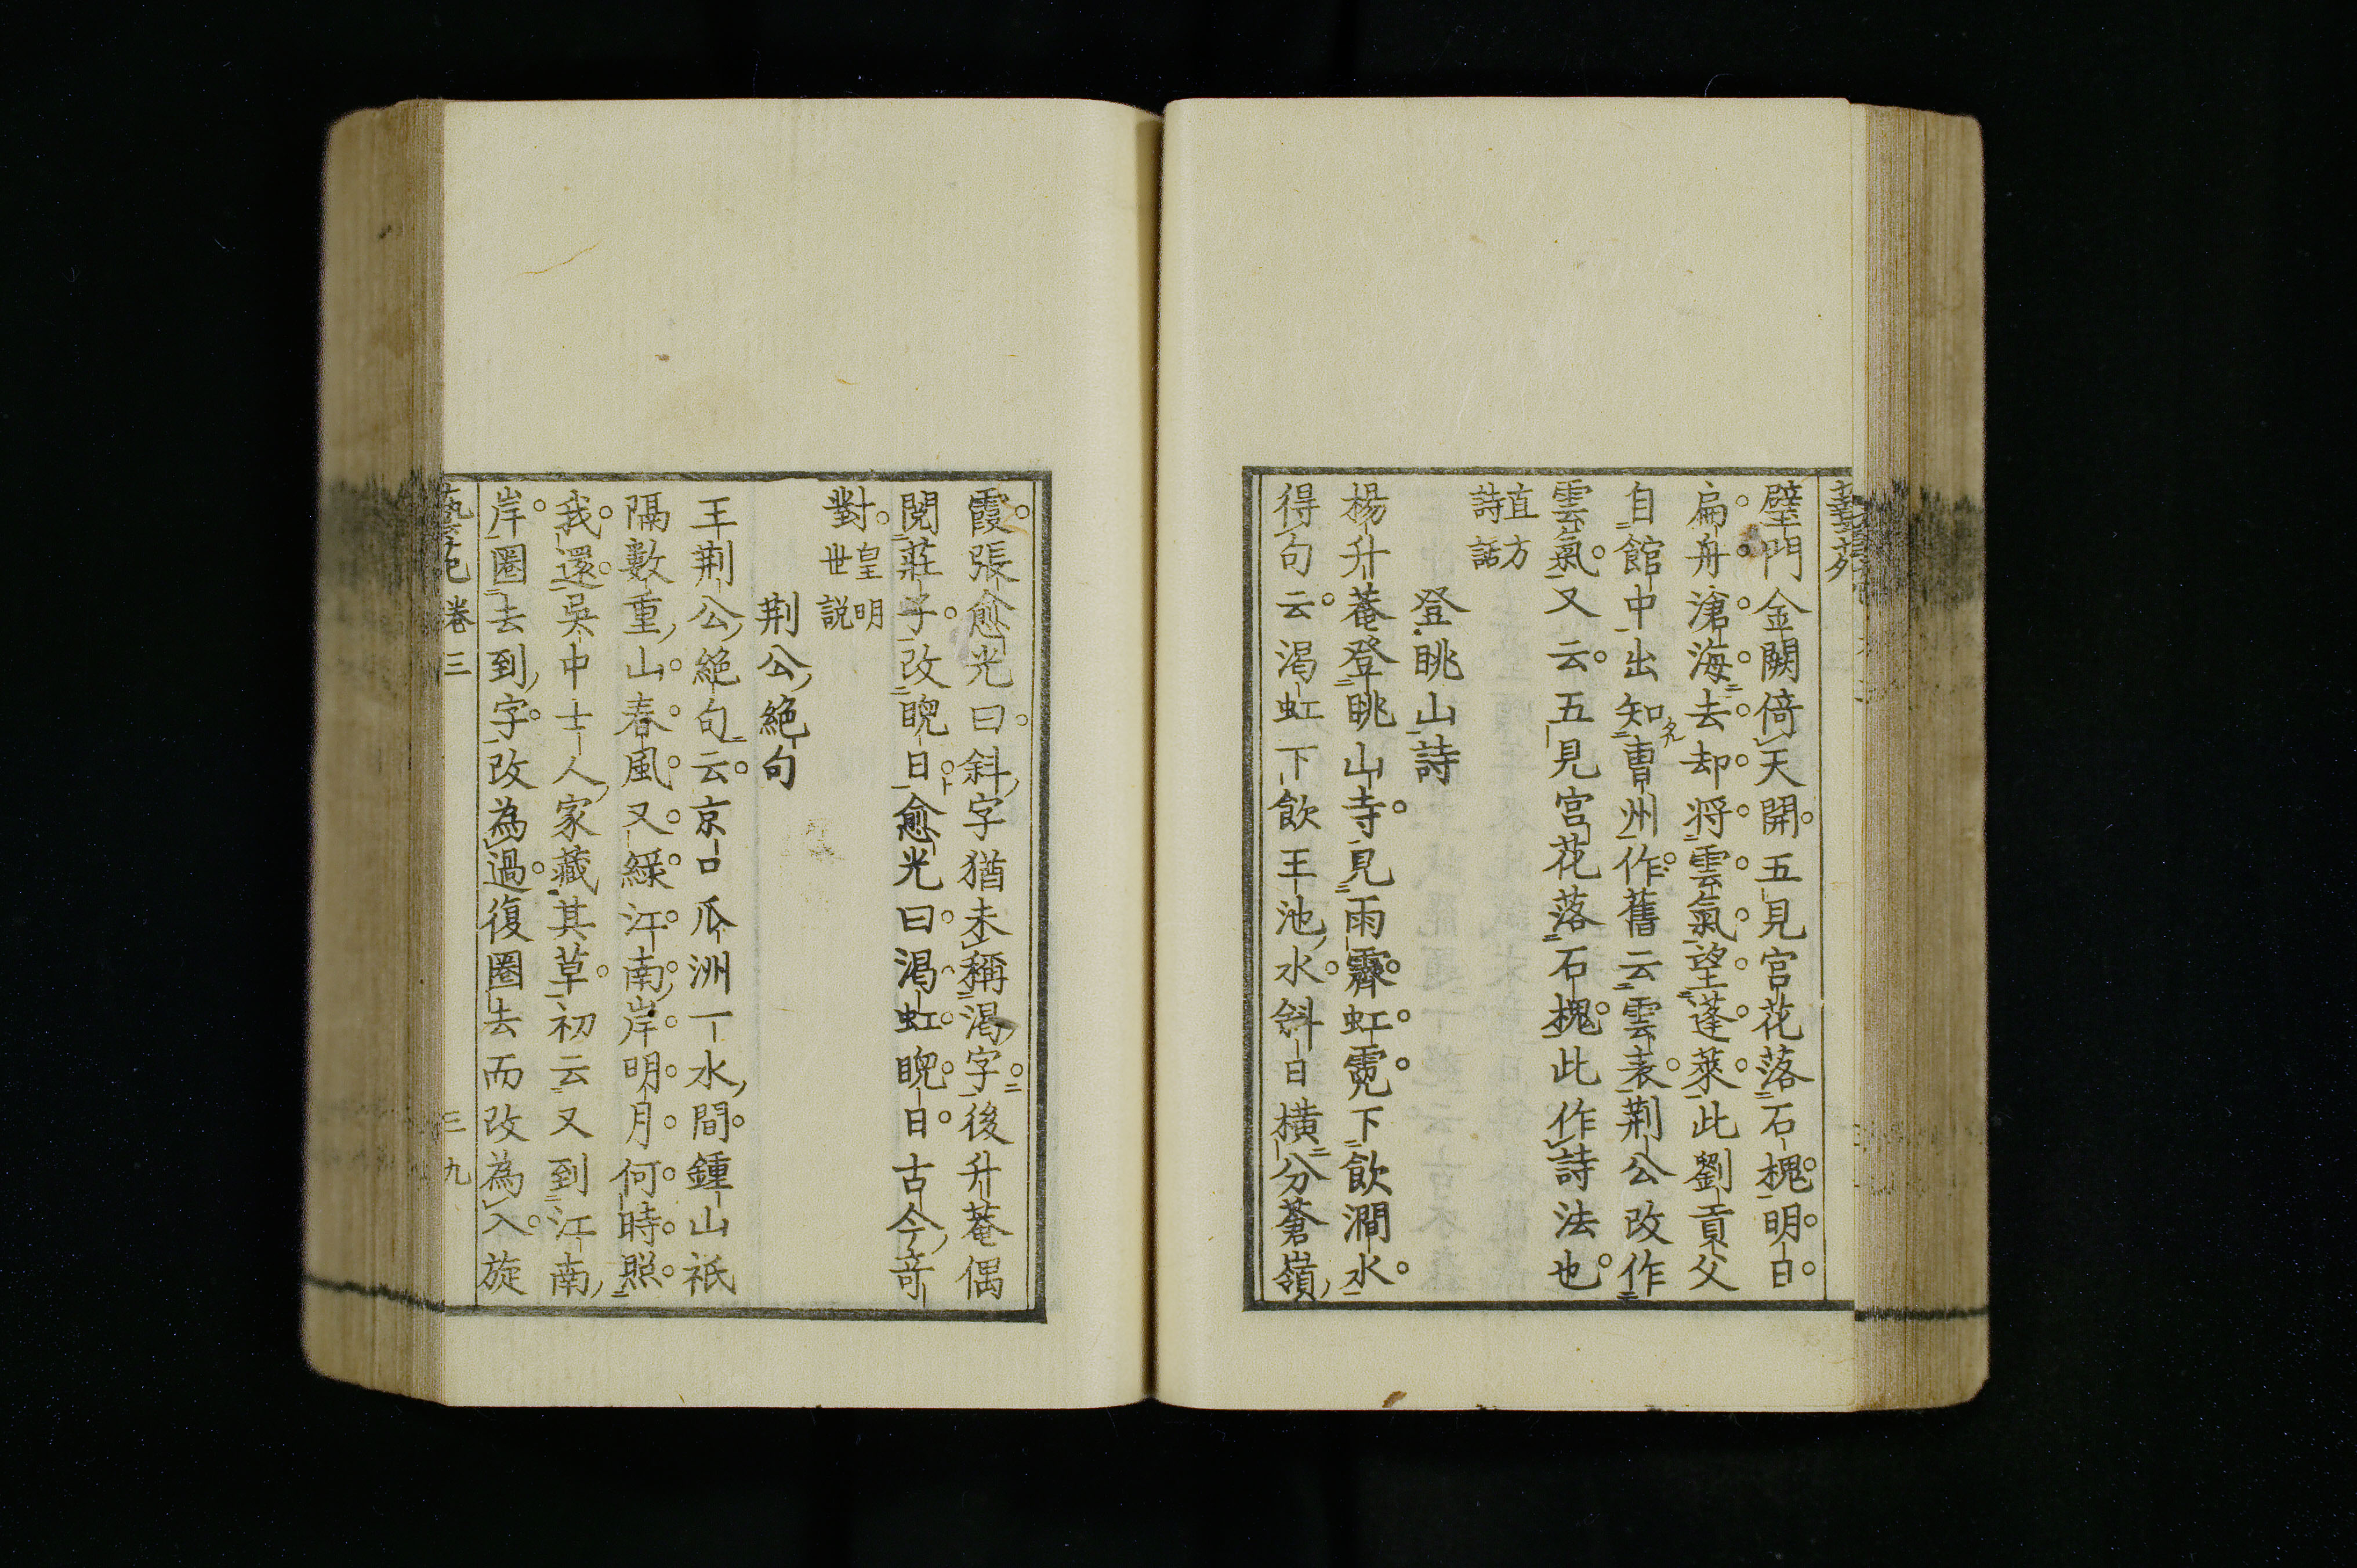 藝苑
璧門金闕倚天開五見宮花落石槐明日
扁舟滄海去却將雲氣望蓬萊此劉貢父
自館中出知曹州作舊云雲表荆公改作
雲氣又云五見宮花落石槐此作詩法也
直方
詩話
登眺山詩
楊升菴登眺山寺見雨霽虹霓下飲澗水
得句云渴虹下飲玉池水斜日橫分蒼嶺
霞張愈光曰斜字猶未稱渴字後升菴偶
閱莊子改睨日愈光曰渴虹睨日古今奇
對皇明
世説
荆公絕句
王荆公絕句云京口瓜洲一水間鍾山祇
隔數重山春風又綠江南岸明月何時照
我還吳中士人家藏其草初云又到江南
岸圈去到字改為過復圈去而改為入旋
藝苑 卷三 三九